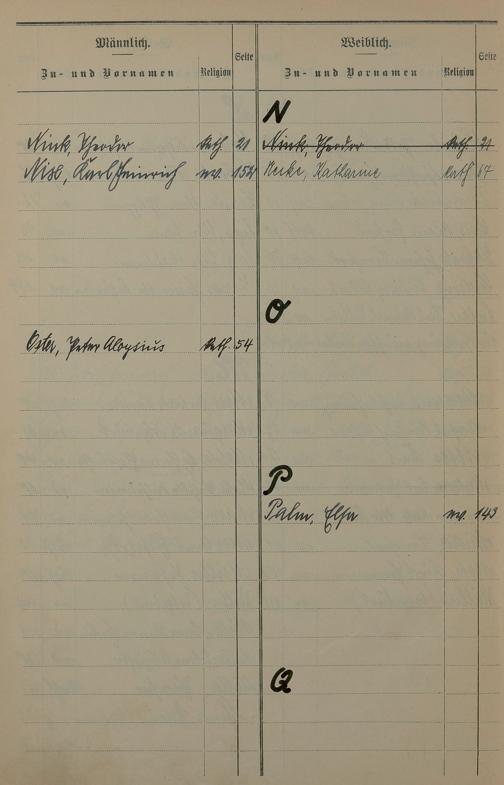 Männlich. Weiblich.
Zu- und Vornamen Religion Seite Zu- und Vornamen Religion Seite
N
Nink, Theodor kath. 21 Nink, Theodor kath. 21
Karl Heinrich ev. 152 Katharine kath 67
O
Oster, Peter Aloysius kath. 54
P
Palm, Elsa ev. 143
Q